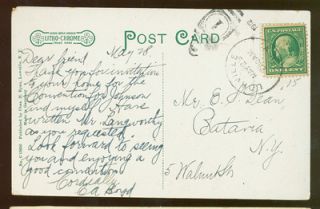 LITHO-CHROME
POST CARD
May 28
Dear Friend
Thank you for invitation
to your Lodge for the
Convention Johnson
and myself Have
written Mr. Langworthy
as you requested
Look forward to seeing
you and enjoying a
good convention
Cordially
U.S. POSTAGE
ONE CENT
Mr. E. J. Dean,
Batavia
N.Y.
Walnut St